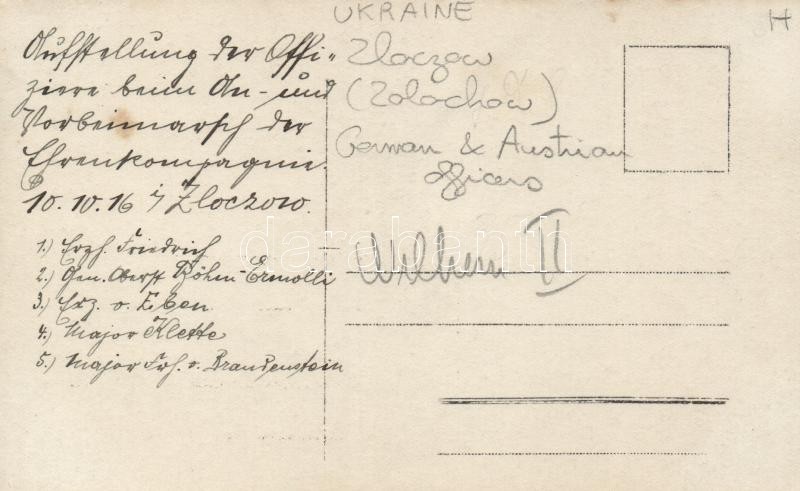 UKRAINE
H
Aufstellung der Offi-
ziere beim An- und
Vorbeimarsch der
Ehrenkompagnie.
10.10.16 i/ Zloczow.
1.) Erzh. Friedrich
2.) Gen. Oberst Böhm-Ermolli
3.) Exz. v. Eben
4.) Major Klette
5.) Major Frh. v. Brandenstein
Zloczow
(Zolochow)
German & Austrian
officers
Wilhem II
darabanth.com